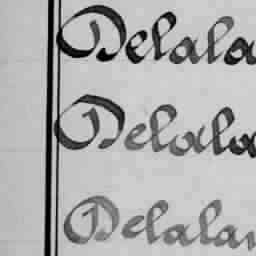 Delala
Delala
Delalan